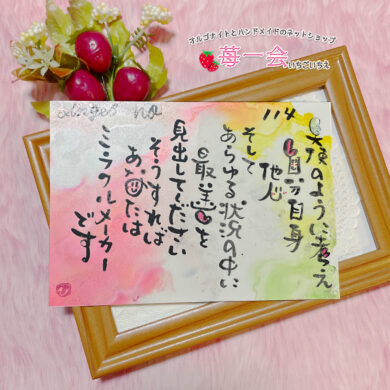 オルゴナイトとハンドメイドのネットショップ
苺一会
いちごいちえ
114
天使のように考え
自分自身
他人
そして
あらゆる状況の中に
最善を
見出してください
そうすれば
あなたは
ミラクルメーカー
です